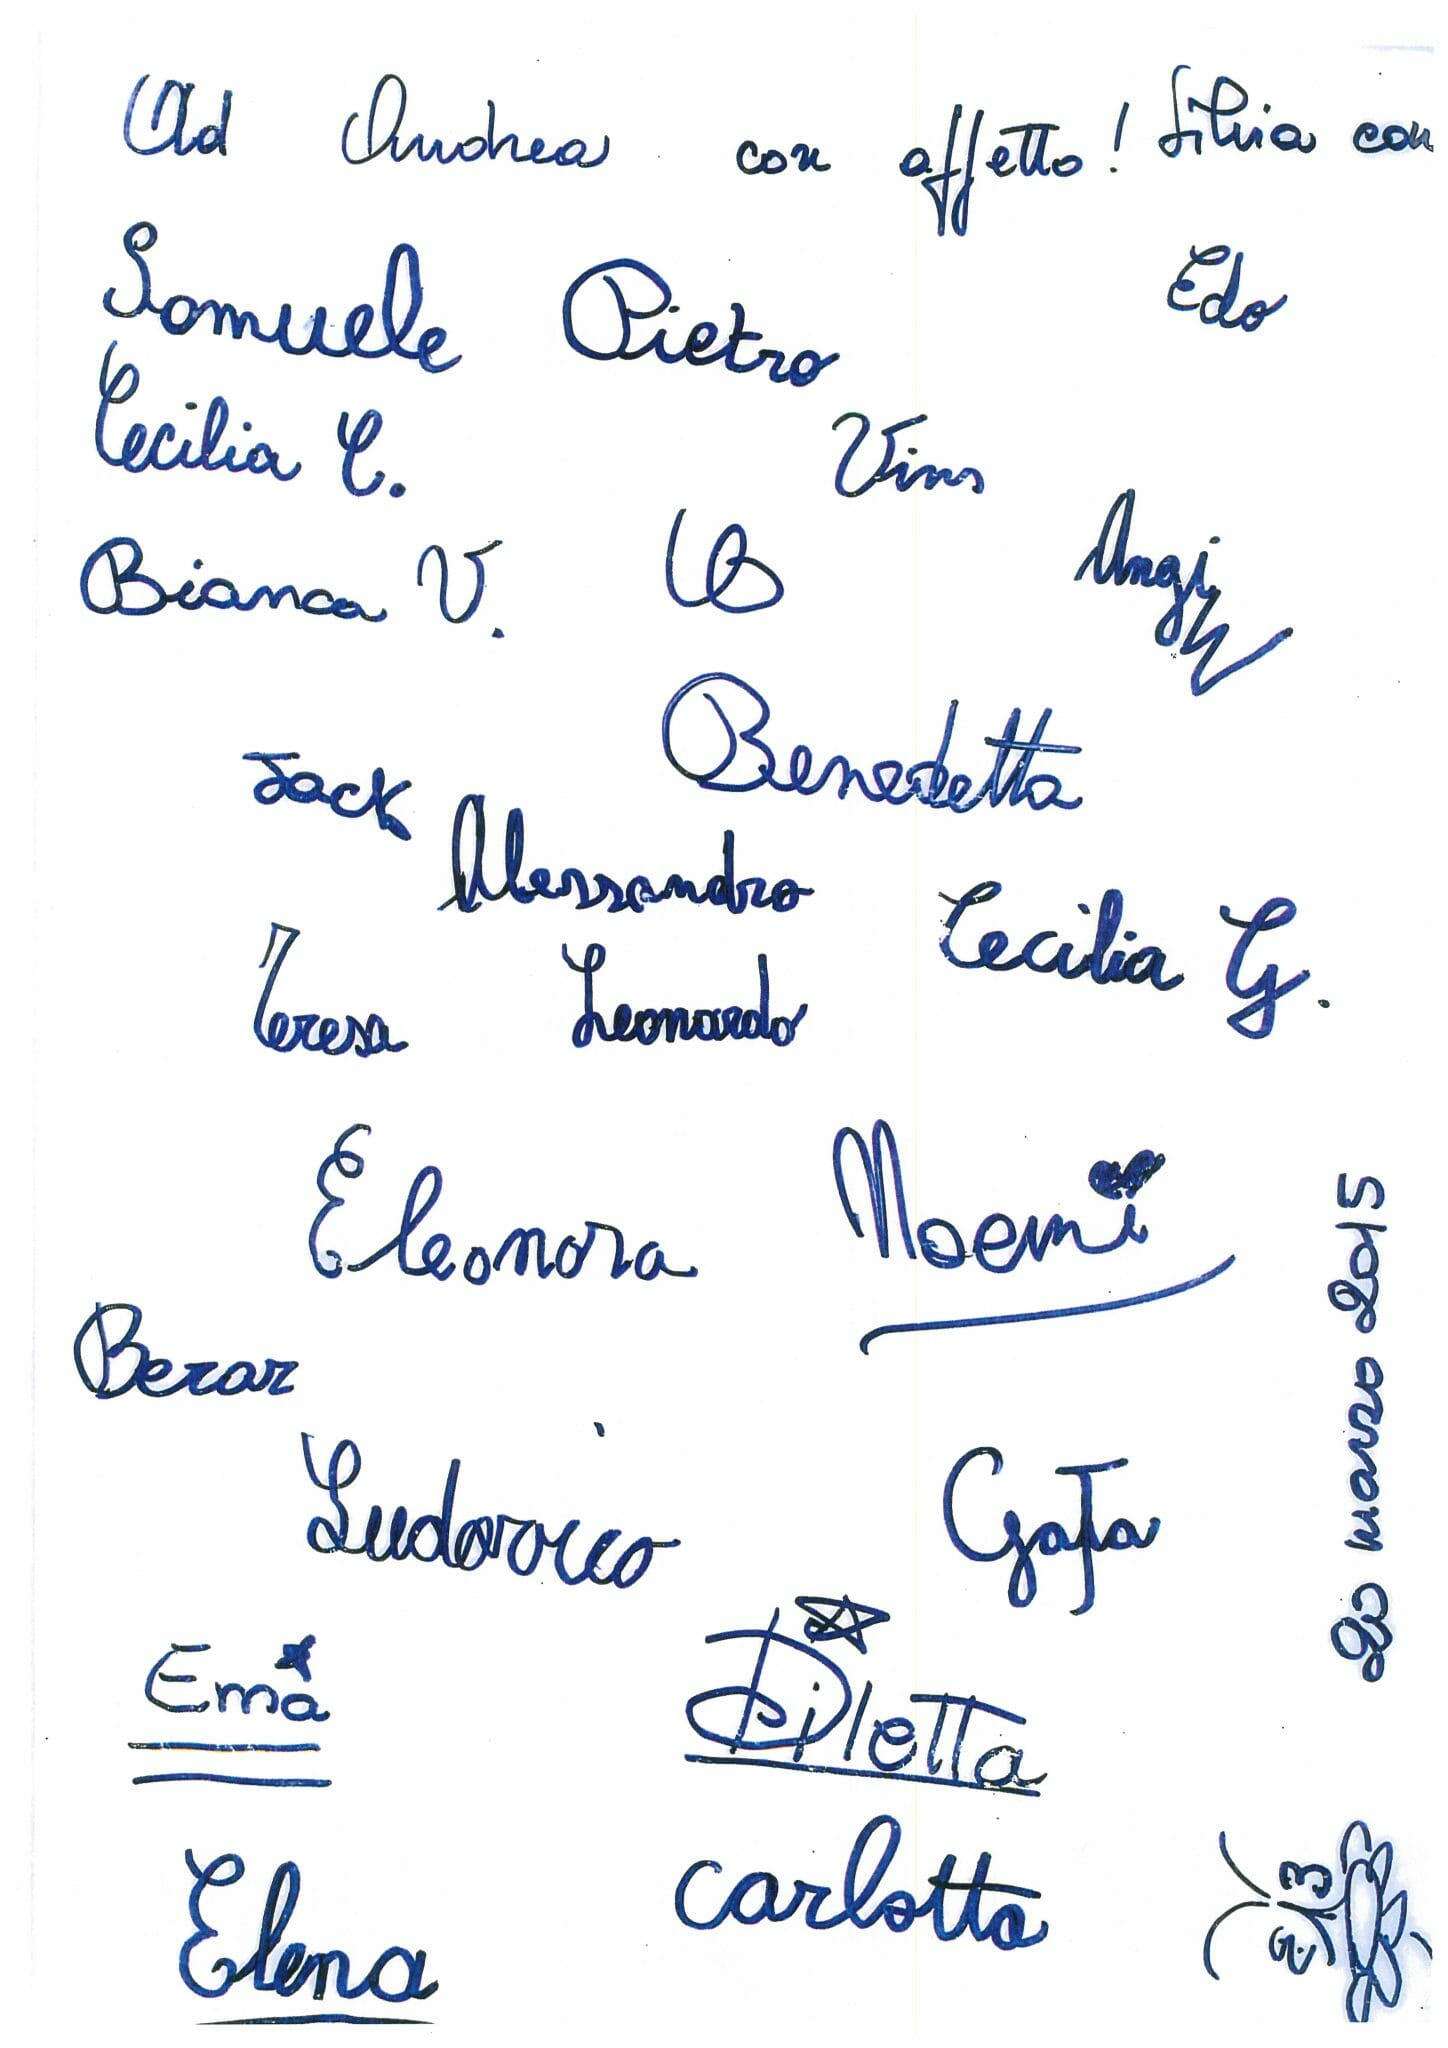 Ad Andrea con affetto! Silvia con
Samuele Pietro Edo
Cecilia C. Vins
Bianca V. Angi
Benedetta
Jack
Alessandro Cecilia G.
Teresa Leonardo
Eleonora Noemi
Berar
Ludovico Gata
Ema Diletta
Elena Carlotta
20 marzo 2015